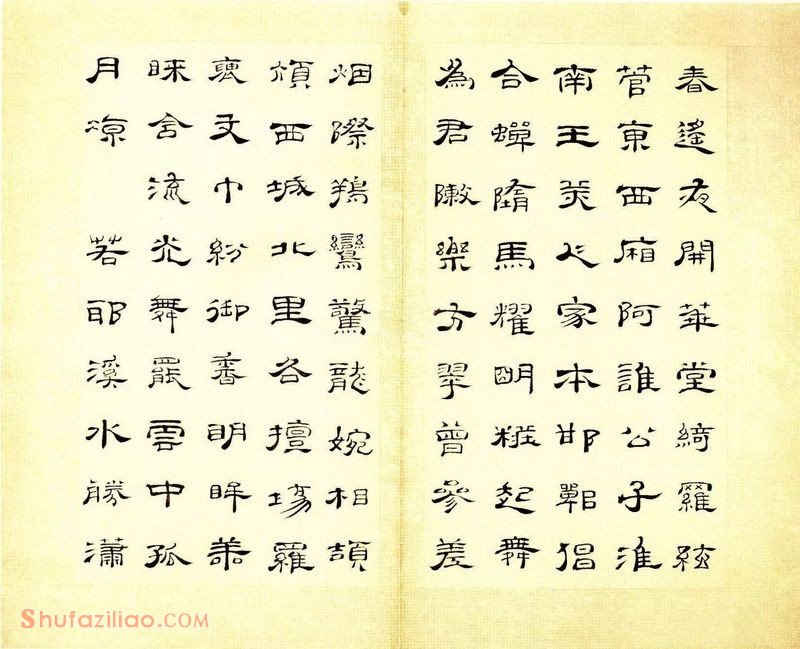 春遙夜開華堂綺羅絃
管東西廂阿誰公子淮
南王美人家本邯鄲倡
合蟬隋馬耀明糚起舞
為君敶樂方翠曾參差
烟際鴹鸞驚龍婉相頡
頏西城北里各擅場羅
褎文巾紛御香明眸善
睞含流光舞罷雲中孤
月涼 若耶溪水勝瀟
Shufaziliao.COM